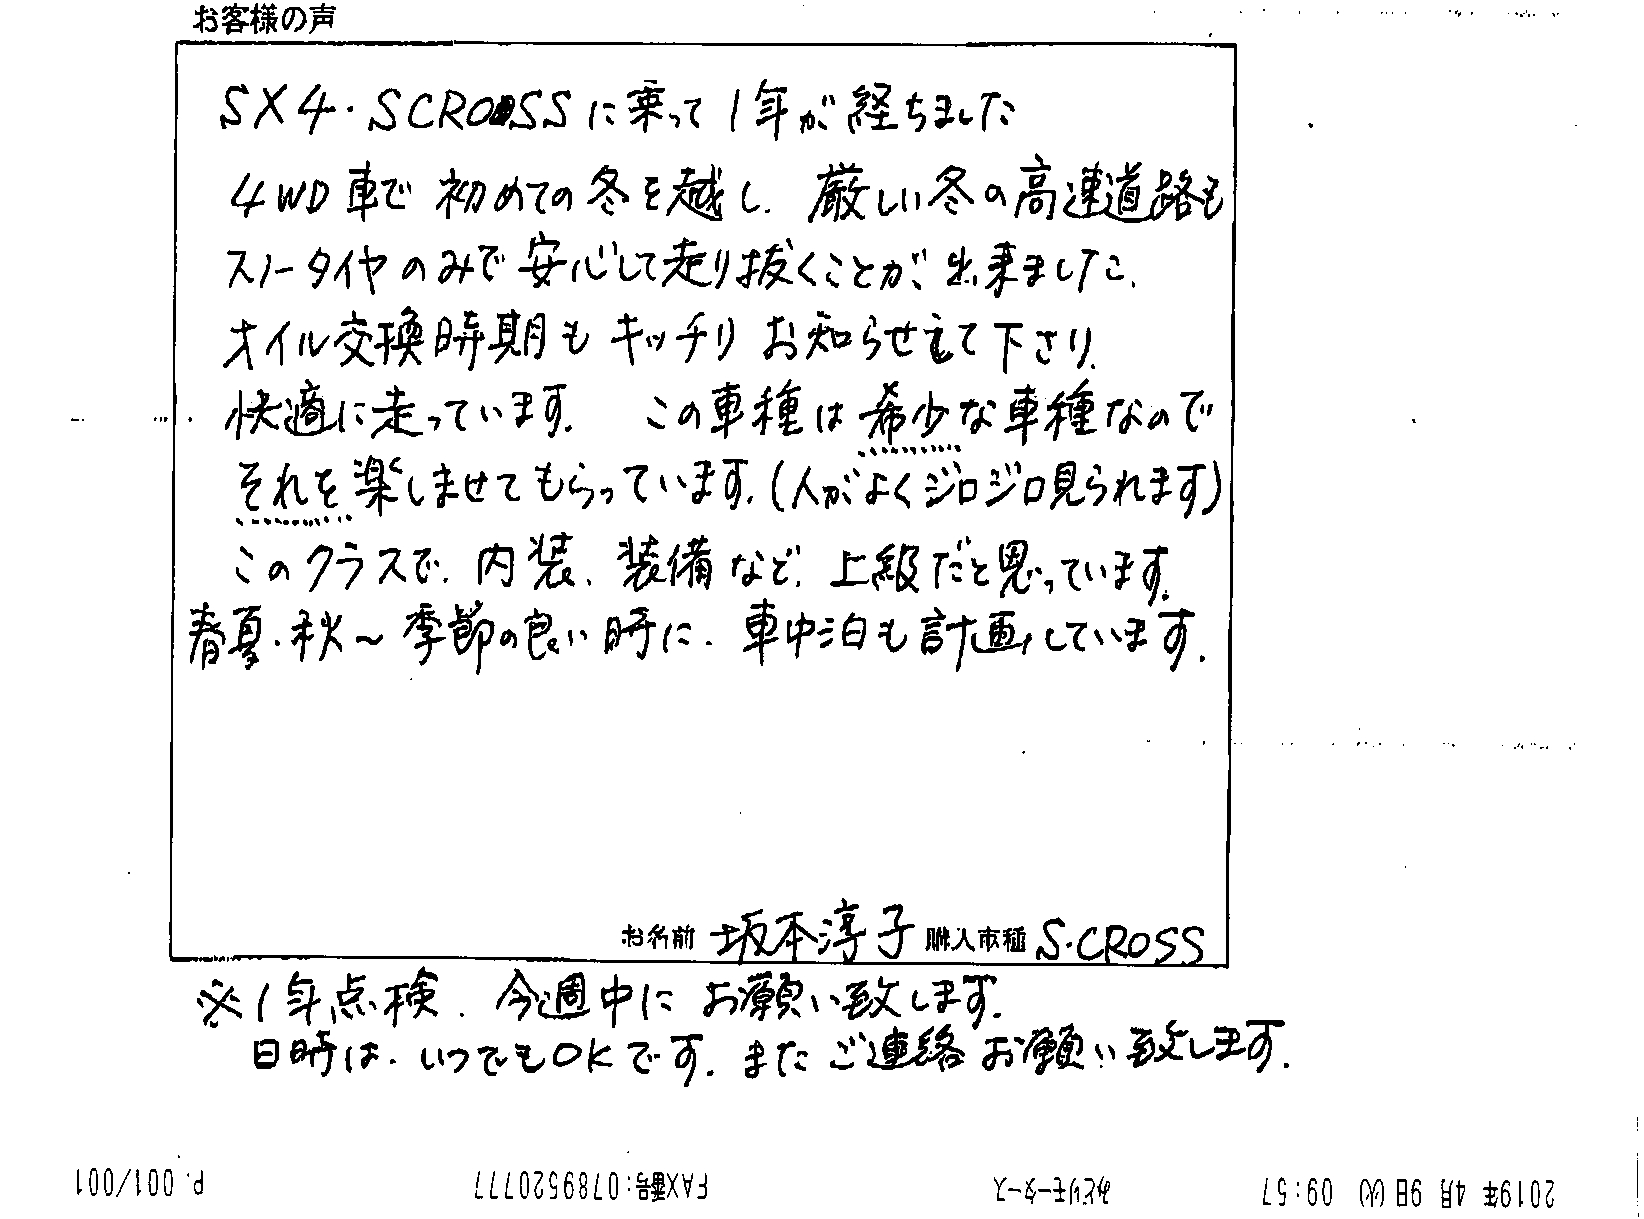 お客様の声
SX4・SCROSSに乗って1年が経ちました
4WD車で初めての冬を越し、厳しい冬の高速道路も
スノータイヤのみで安心して走り抜くことが、出来ました、
オイル交換時期もキッチリお知らせして下さり、
快適に走っています。 この車種は希少な車種なので
それを楽しませてもらっています。(人がよくジロジロ見られます)
このクラスで、内装、装備など、上級だと思っています。
春夏・秋～季節の良い時に、車中泊も計画しています。
お名前 坂本淳子 購入車種 S・CROSS
※1年点検、今週中にお願い致します。
日時は、いつでもOKです。またご連絡お願い致します。
2019年 4月 9日(火) 09:57 みどりモータース FAX番号:0789520777 P. 001/001